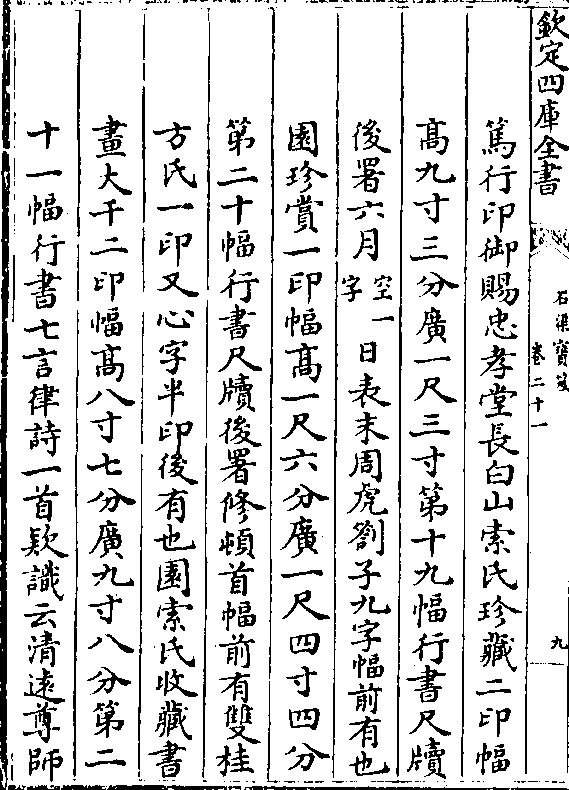 欽定四庫全書
石渠寶笈
卷二十一
九
篤行印御賜忠孝堂長白山索氏珍藏二印幅
髙九寸三分廣一尺三寸第十九幅行書尺牘
後署六月空一字日表末周虎劄子九字幅前有也
園珍賞一印幅髙一尺六分廣一尺四寸四分
第二十幅行書尺牘後署修頓首幅前有雙桂
方氏一印又心字半印後有也園索氏收藏書
畫大千二印幅髙八寸七分廣九寸八分第二
十一幅行書七言律詩一首欵識云清逺尊師